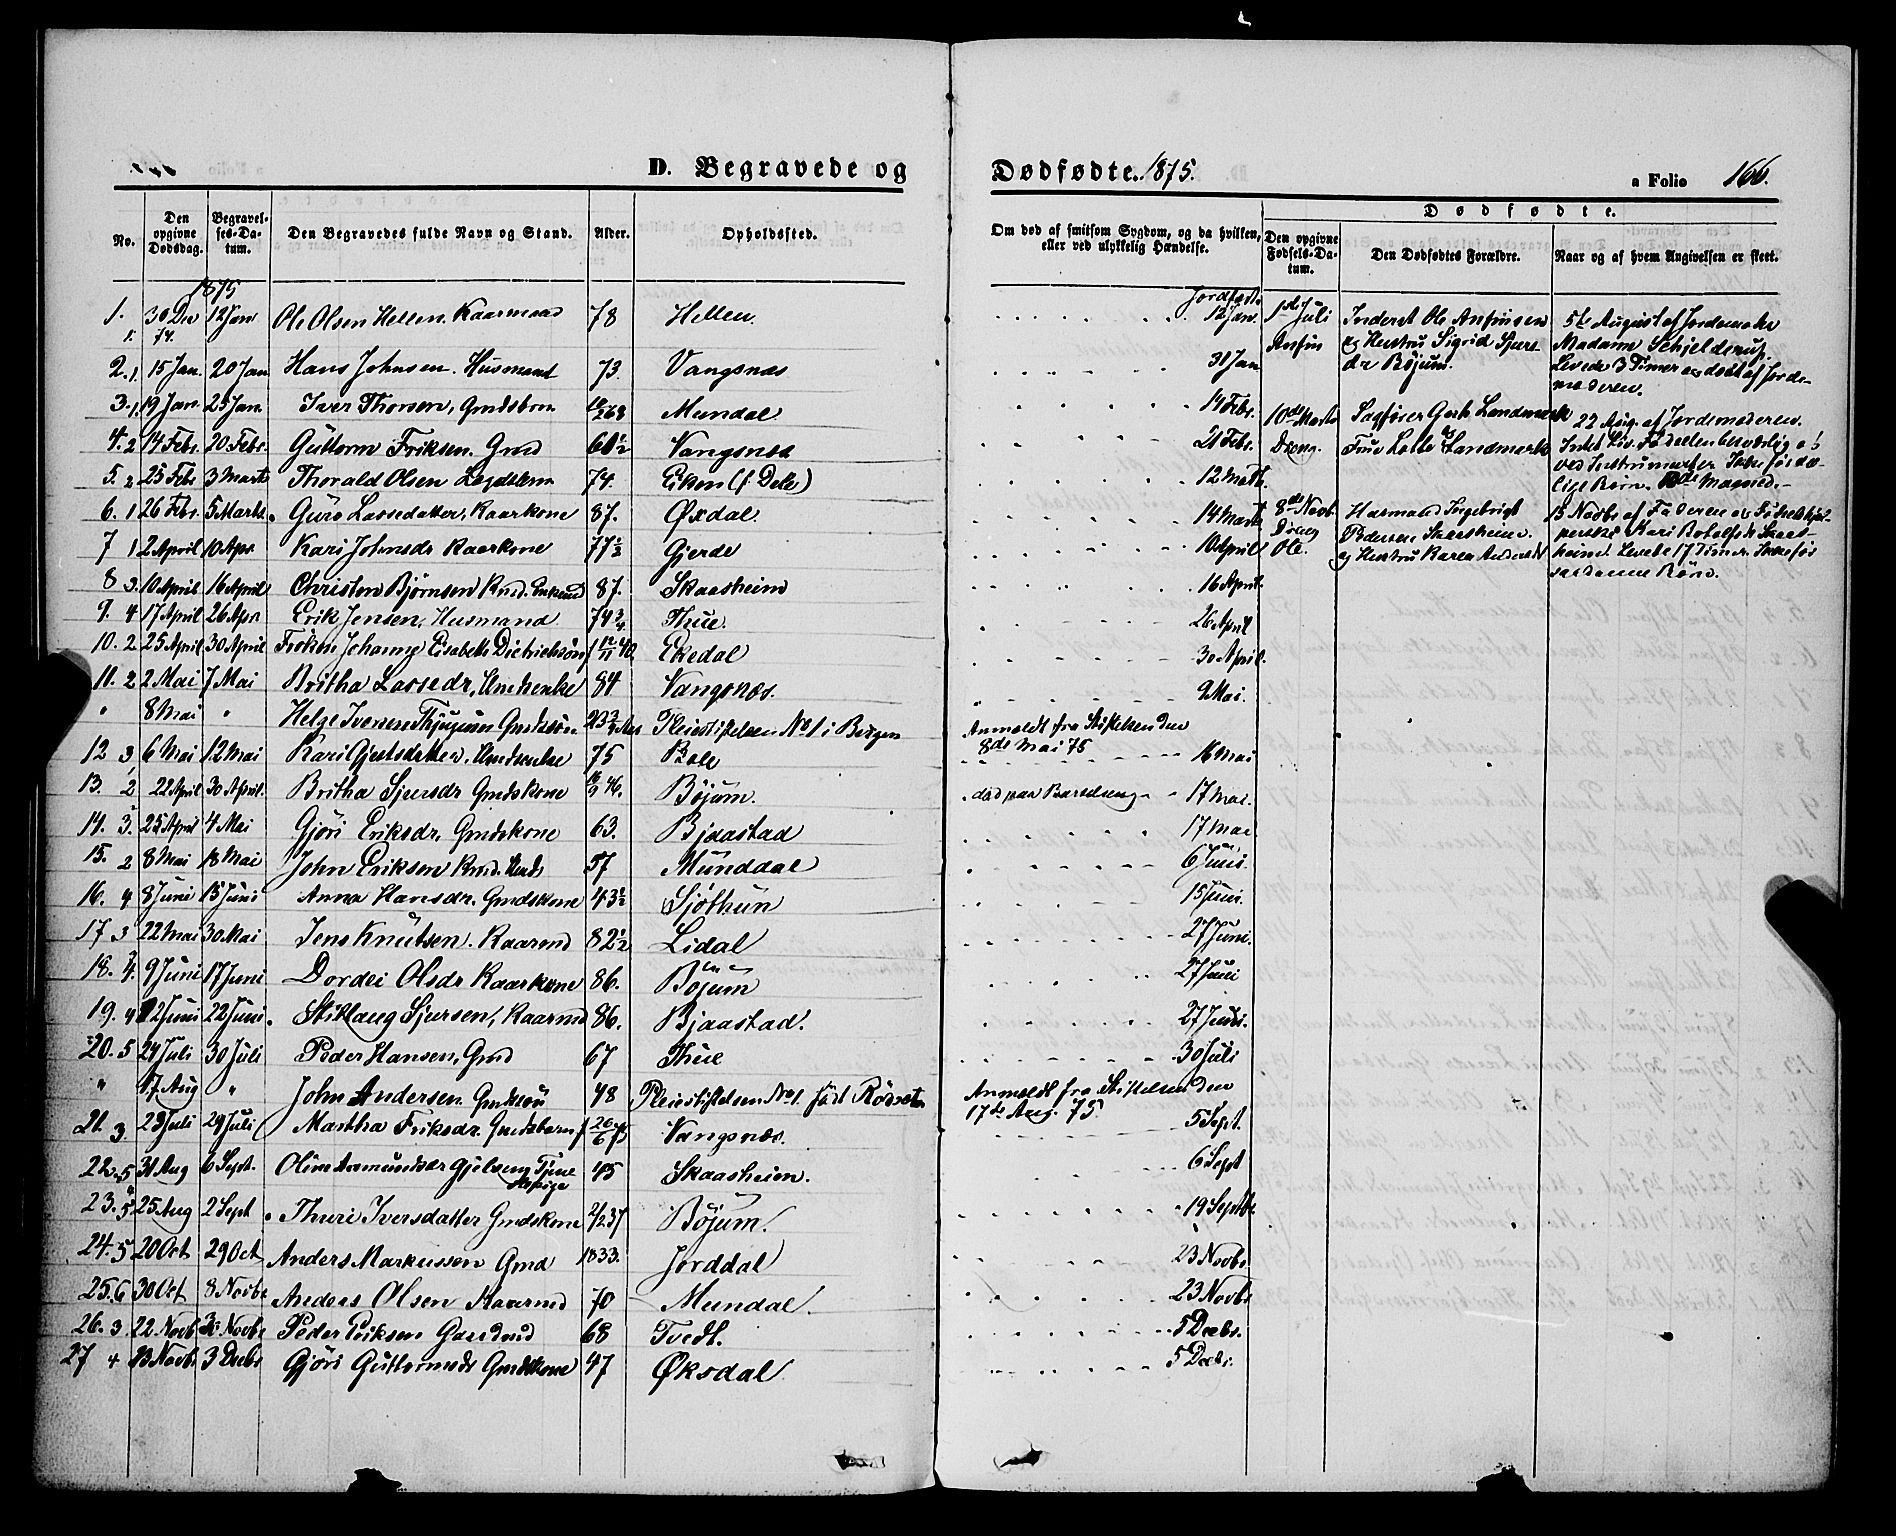 D. Begravede og
Dødfødte. 1875.
a Folio 166.
No.
Den opgivne Dødsdag.
Begravelses-Datum.
Den Begravedes fulde Navn og Stand.
Alder.
Opholdssted.
Om død af smitsom Sygdom, og da hvilken, eller ved ulykkelig Hændelse.
Dødfødte.
Den opgivne Fødsels-Datum.
Den Dødfødtes Forældre.
Naar og af hvem Angivelsen er skeet.
1875
1. 30 Dec 74. 12 Jan Ole Olsen Hellen. Kaarmand 78 Hellen. 12 Jan.
2. 1. 15 Jan. 20 Jan Hans Johnsen. Husmand 73. Vangsnæs 31 Jan
3. 1. 19 Jan. 25 Jan. Iver Thorsen, Gmdsbrn Mundal 14 Febr.
4. 2 14 Febr. 20 Febr. Guttorm Eriksen. Gmd 60½ Vangsnæs 21 Febr.
5. 2 25 Febr 3 Marts Thorald Olsen Lægdslem 74. Eiken (f. Dele) 12 Marts.
6. 1 26 Febr. 5 Marts. Guro Lassedatter, Kaarkone 87. Øxdal. 14 Marts
7 1 2 April 10 Apr Kari Johnsdr Kaarkone 77½ Gjerde 10 April
8 3. 10 April 16 April Christen Bjørnsen Kmd. Enkemd 87. Skaasheim 16 April.
9. 4 17 April 26 Apr Erik Jensen, Husmand 74¾ Thue. 26 April
10. 2 25 April 30 April Frøken Johanne Elisabeth Dietrichson f 12/11 40. Ekedal 30 April.
11. 2 2 Mai 7 Mai Britha Lassedr, Umdsenke 84 Vangsnæs. 9 Mai.
" 8 Mai " Helge Iversen Gmdssøn Pleiestiftelsen No 1 i Bergen Anmeldt fra Stiftelsen den
8de Mai 75
12 3, 6 Mai 12 Mai Kari 75 Bale 16 Mai
13. 2 22 April 30 April. Britha Sjursdr Gmdskone 46. Bøjum. død paa Barselseng 17 Mai.
14. 3. 25 April 4 Mai Gjøri Eriksdr, Gmdskone 63. Bjaastad 17 Mai
15. 2 8 Mai 18 Mai John Eriksen 57 Munddal 6 Juni.
16. 4 8 Juni 15 Juni Anna Hansdr. Gmdskone 43½ Sjøthun 15 Juni.
17. 3 22 Mai 30 Mai Jens Knutsen. Kaarmd 82½ Lidal 27 Juni.
18. 4. 9 Juni 17 Juni Dordei Olsdr Kaarkone 86. Bøjum 27 Juni
19. 4 12 Juni 22 Juni. Stiklaug Sjursen, Kaarmd 86. Bjaastad. 27 Juni.
20. 5 24 Juli 30 Juli Peder Hansen, Gmd 67 Thue 30 Juli
" 17 Aug " John Andersen Gmdssøn 48 Pleiestiftelsen No 1. født Anmeldt fra Stiftelsen den
17de Aug. 75.
21. 3. 23 Juli 29 Juli Martha Eriksdr, Gmdsbarn f 26/6 75 Vangsnæs. 5 Sept.
22. 5 31 Aug 6 Sept. 45 Skaasheim. 6 Sept
23. 5 25 Aug 2 Sept Thuri Iversdatter Gmdskone 2/2 37 Bøjum. 19 Septbr.
24. 5 20 Oct 29 Oct Anders Markussen Gmd 1833. Jorddal 23 Novbr
25. 6 30 Oct 8 Novbr Anders Olsen Kaarmd 70 Mundal. 23 Novbr
26. 3. 22 Novb 30 Novbr Peder Eriksen Gaardmd 68 Tvedt. 5 Decbr.
27 4 23 Novb. 3 Decbr Gjøri Guttormsdr Gmdskone 47 Øksdal 5 Decbr.
Jordfæstet
1ste Juli
Anfin
Inderst Ole Anfinsen
og Hustru Sigrid Sjurs-
dr Bøjum.
5te August af Jordemoder
Madame Schjelderup.
Levede 3 Timer og døbt af Jorde-
moderen.
10de Marts
Dreng.
Sagfører Gerh Landmark
Frue Landmark
22 Aug. af Jordemoderen.
Intet Liv. Fødselen besværlig og
ved Instrumenter
8de Novb.
Dreng
Ole.
Husmand Ingebrigt
Pedersen Skaasheim
og Hustru Karen
15 Novbr af Faderen og
Kari Skaas-
heim. Levede 17 Timer.